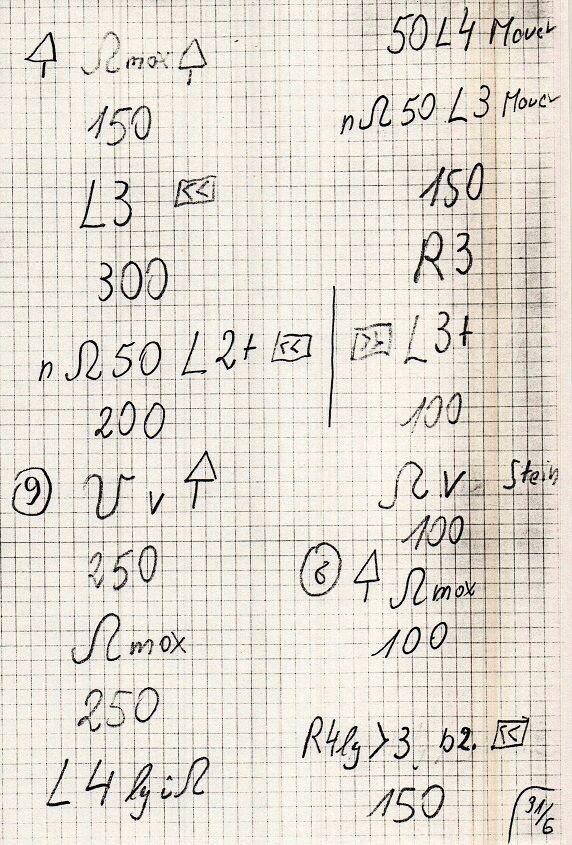 Ω max
150
L3 <<
300
n Ω 50 L2+ <<
200
9 v
250
Ω max
250
L4 lg i Ω
50 L4 Mauer
n Ω 50 L3 Mauer
150
R3
>> L3+
100
Ω v Stein
100
8 Ω max
100
R4 lg > 3. b2. <<
150
31/6